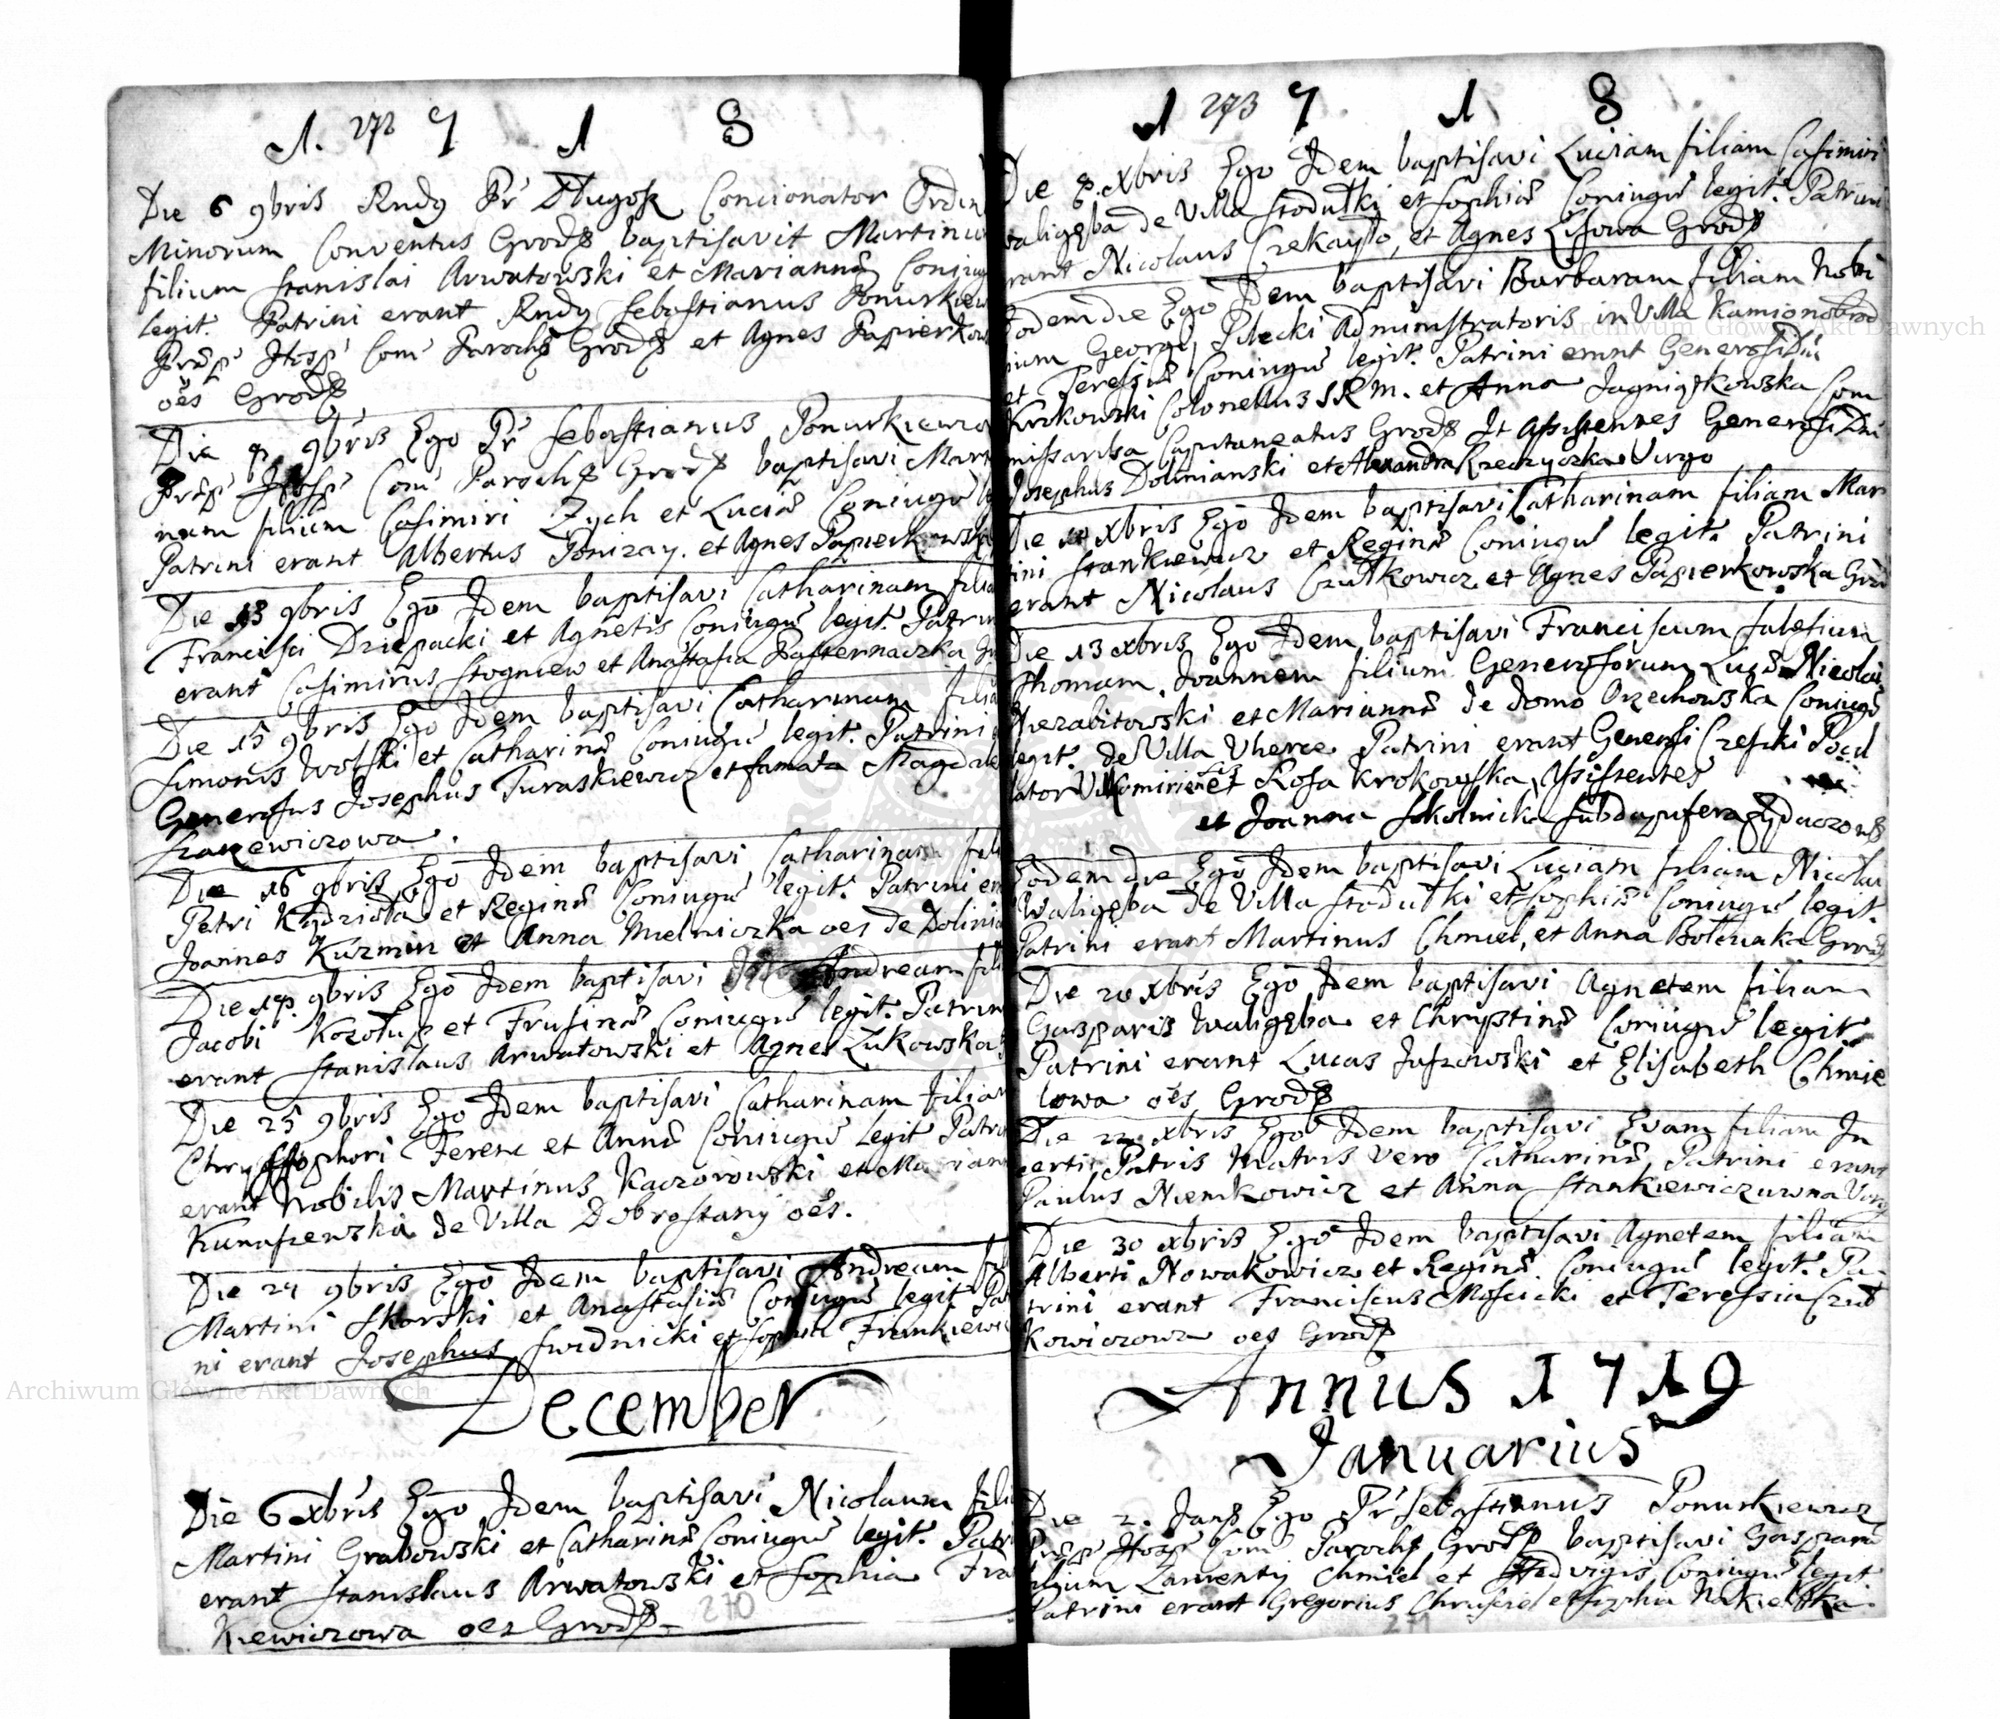 1. 272 7 1 8
Die 6 9bris Rndq Pr Długosz Concionator Ordin
Minorum Conventus Grods baptisavit Martinu
filium Stanislai Arwatowski et Mariannæ Coniug
legit. Patrini erant Rndq Sebastianus Ponurkiew
Præp Hosp Com Paroch Grod et Agnes Papierkows
oēs Grod
Die 9bris Ego Pr Sebastianus Ponurkiewicz
Præp Hosp Com Paroch Grod baptisavi Mart
num filium Casimiri Zych et Luciæ Coniugu
Patrini erant Albertus Ponizay et Agnes Papierkowska
Die 13 9bris Ego Idem baptisavi Catharinam filia
Francisci Dziepacki et Agnetis Coniugu legit. Patrin
erant Casimirus Stogniew et Anastasia Pasternaczka
Die 15 9bris Ego Idem baptisavi Catharinam filia
Simonis Wolski et Catharinæ Coniugu legit. Patrini
Generosus Josephus Turaskiewicz et famata Magdale
Szacewiczowa.
Die 16 9bris Ego Idem baptisavi Catharinam fili
Petri Kądziola et Reginæ Coniugu legit. Patrini er
Joannes Kuzmin et Anna Mielniczka oes de Dolinia
Die 9bris Ego Idem baptisavi Andream fili
Jacobi et Frusinæ Coniugu legit. Patrin
erant Stanislaus Arwatowski et Agnes Zukowska
Die 25 9bris Ego Idem baptisavi Catharinam filia
Chrystophori Ferenc et Annæ Coniugu legit Patri
erant Nobilis Martinus Kaczorowski et Marian
Kunaszewska de Villa Dobrostany oēs.
Die 9bris Ego Idem baptisavi Andream fi
Martini Skorski et Anastasiæ Coniugu legit Pat
ni erant Josephus Swidnicki et Sophia Frankiewi
December
Die 6 xbris Ego Idem baptisavi Nicolaum fili
Martini Grabowski et Catharinæ Coniugu legit. Patr
erant Stanislaus Arwatowski et Sophia Fra
Kiewiczowa oes Grod
270
1 273 7 1 8
Die 8. xbris Ego Idem baptisavi Luciam filiam Casimiri
Waligęba de Villa Stodułki et Sophiæ Coniugu legit. Patrini
erant Nicolaus Czekayło, et Agnes Lisowa Grod
Eodem die Ego Idem baptisavi Barbaram filiam Nobi
lium Georgij Pilecki Administratoris in Villa Kamionobrod
et Teressiæ Coniugu legit. Patrini erant Generosi Dni
Krokowski Colonellus S R M. et Anna Jagniątkowska Com
missarissa Capitaneatus Grod It Assistentes Generosi Dni
Josephus Dolinianski et Alexandra Rzeczyczka Virgo
Die xbris Ego Idem baptisavi Catharinam filiam Mar
tini Stankiewicz et Reginæ Coniugu legit. Patrini
erant Nicolaus Czułkowicz et Agnes Papierkowska Grod
Die 13 xbris Ego Idem baptisavi Franciscum Salesium
Thomam Joannem filium Generosorum Nicolai
Niezabitowski et Mariannæ de domo Orzechowska Coniugu
legit. de Villa Uherce Patrini erant Generosi Czeski Pocil
lator et Rosa Krokowska, Assistentes
et Joanna Skolnicka Subdapifera
Eodem die Ego Idem baptisavi Luciam filiam Nicolai
Waligęba de Villa Stodułki et Sophiæ Coniugu legit.
Patrini erant Martinus Chmiel, et Anna Grod
Die 20 xbris Ego Idem baptisavi Agnetem filiam
Gasparis Waligęba et Chrystinæ Coniugu legit.
Patrini erant Lucas et Elisabeth Chmie
lowa oēs Grod
Die xbris Ego Idem baptisavi Evam filiam In
certi Patris Matris vero Catharinæ Patrini erant
Paulus Niemkowicz et Anna Stankiewiczuwna Virg
Die 30 xbris Ego Idem baptisavi Agnetem filiam
Alberti Nowakowicz et Reginæ Coniugu legit. Pa-
trini erant Franciscus Moscicki et Teressia Czuł
Kowiczowa oes Grod
Annus 1719
Januarius
Die 2. Jan Ego Pr Sebastianus Ponurkiewicz
Præp Hosp Com Paroch Grod baptisavi Gasparu
filium Laurentij Chmiel et Hedvigis Coniugu legit
Patrini erant Gregorius et Sophia
271
Archiwum Główne Akt Dawnych
Archiwum Główne Akt Dawnych